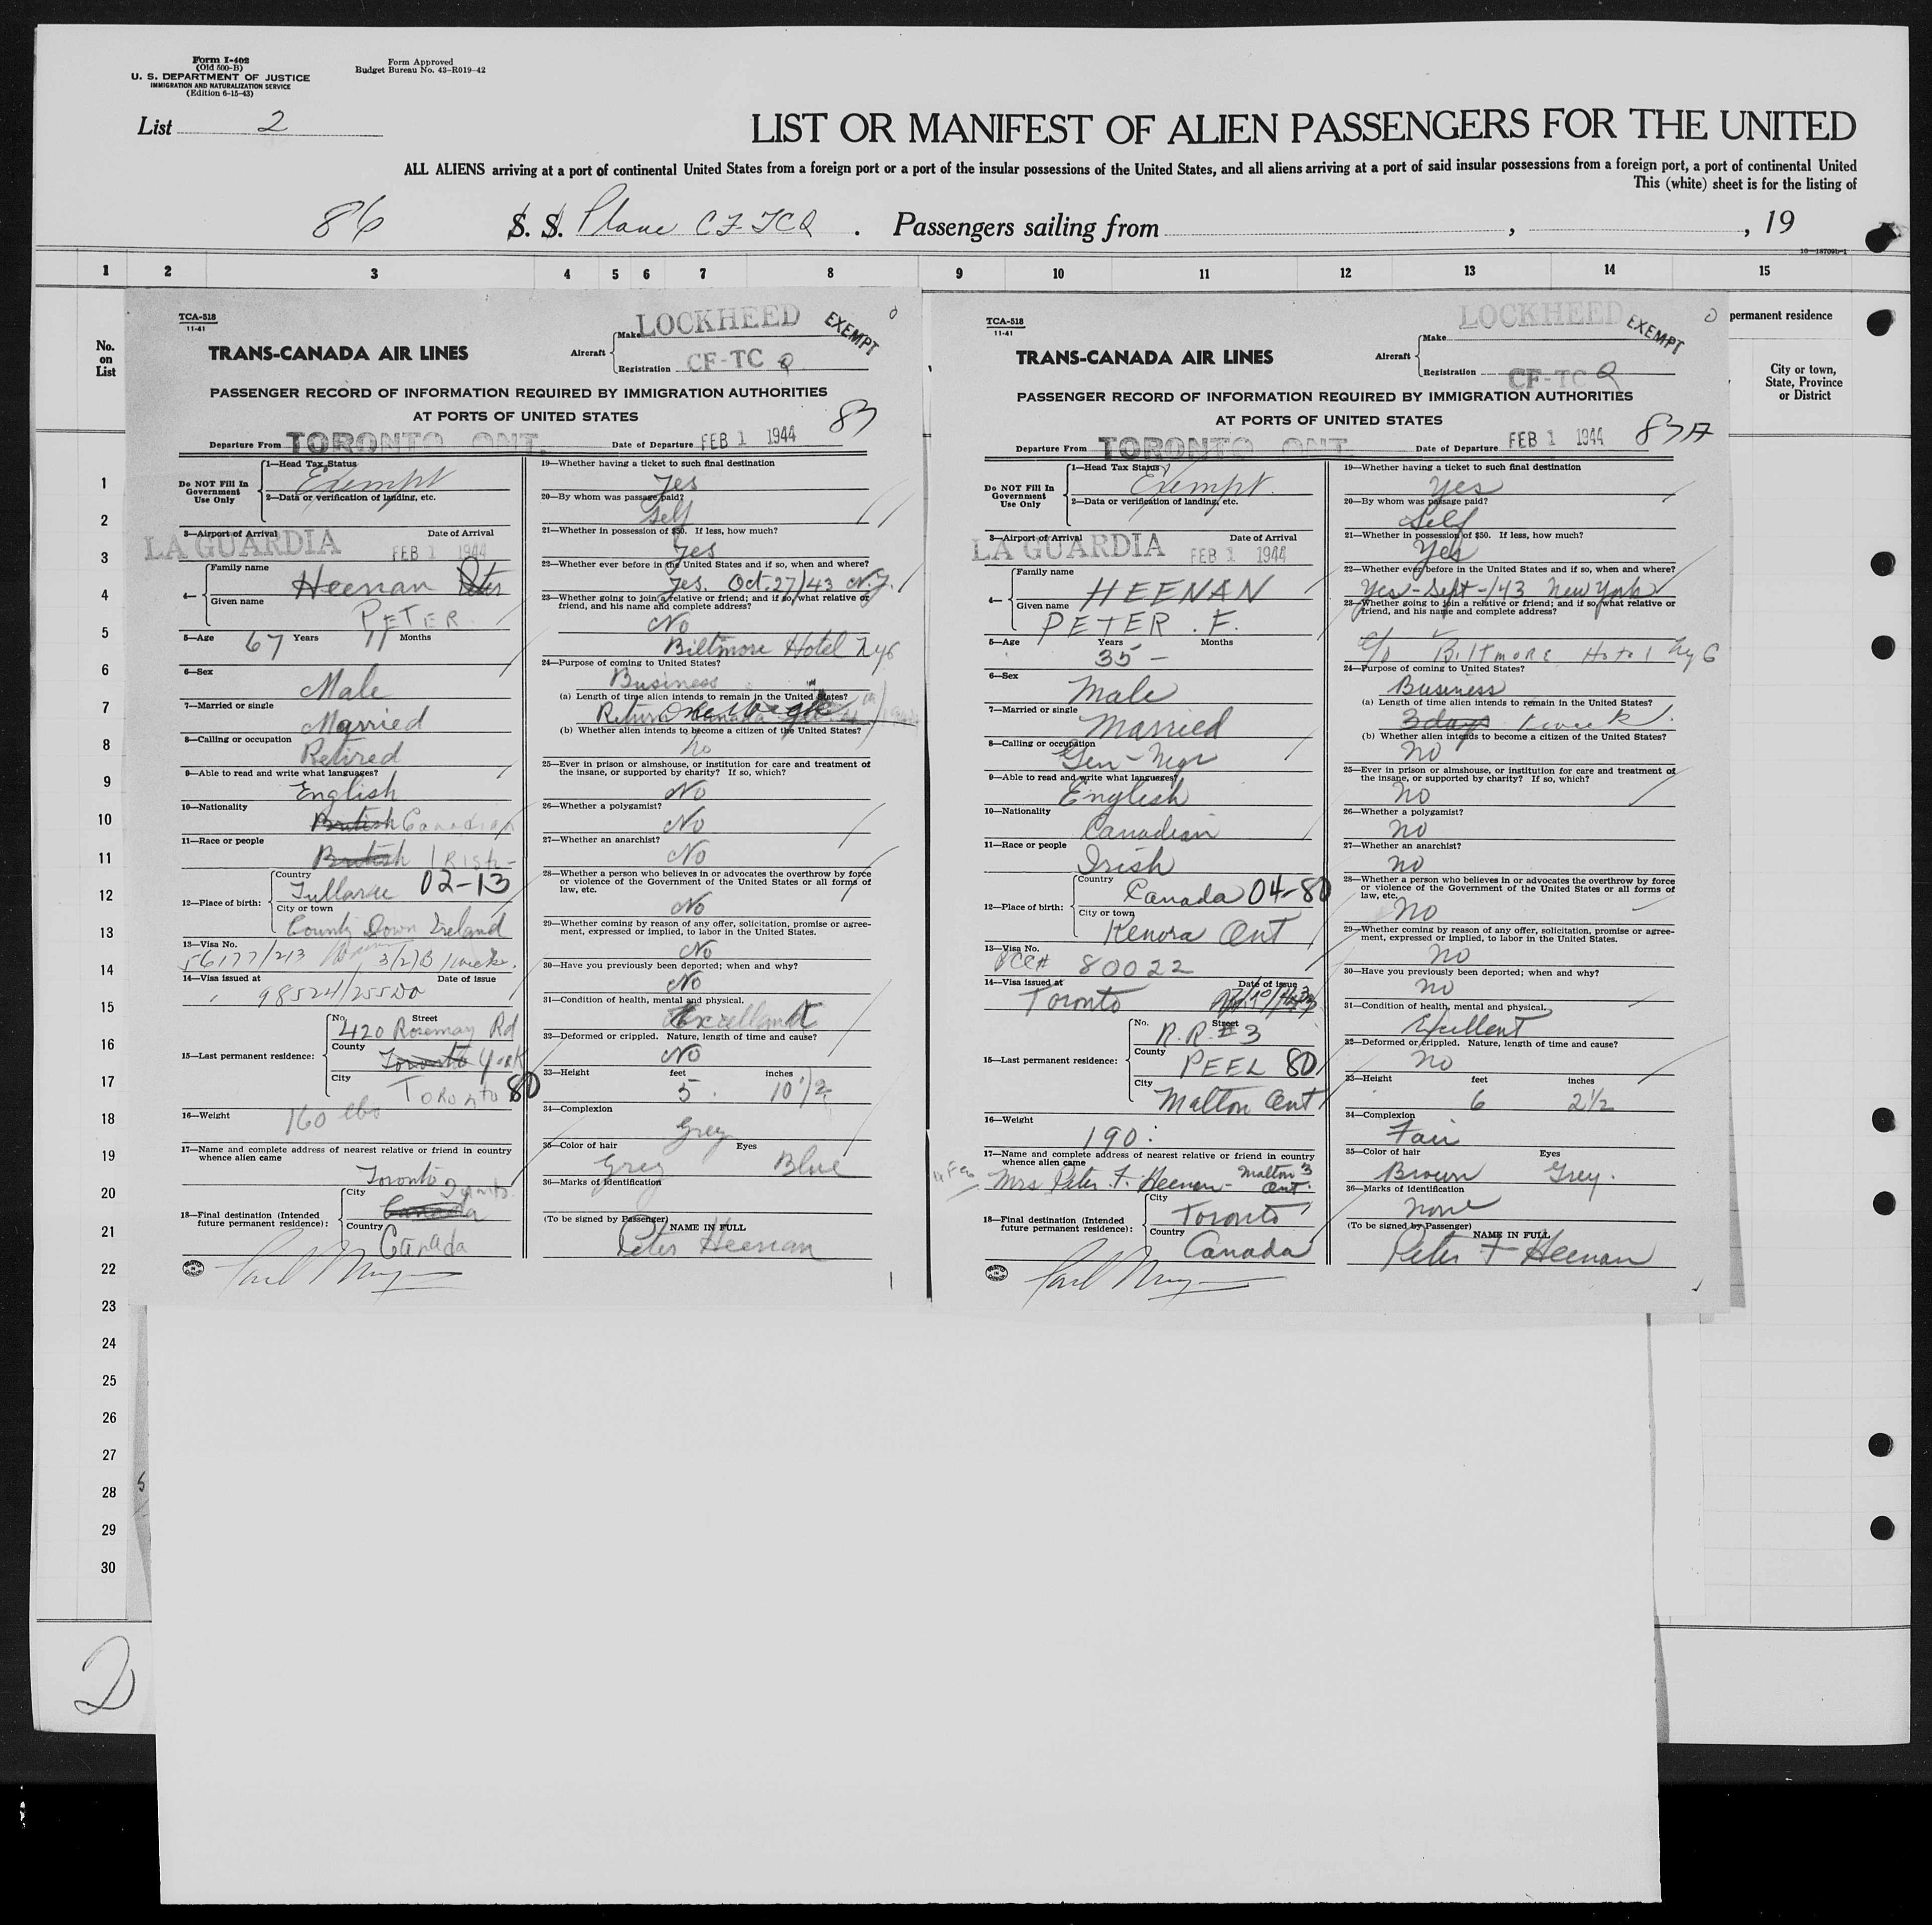 Form I-402
(Old 500-B)
U. S. DEPARTMENT OF JUSTICE
IMMIGRATION AND NATURALIZATION SERVICE
(Edition 6-15-43)
Form Approved
Budget Bureau No. 43-R019-42
List 2
LIST OR MANIFEST OF ALIEN PASSENGERS FOR THE UNITED
ALL ALIENS arriving at a port of continental United States from a foreign port or a port of the insular possessions of the United States, and all aliens arriving at a port of said insular possessions from a foreign port, a port of continental United
This (white) sheet is for the listing of
86 S. S. Plane CF-TCQ . Passengers sailing from , , 19
16—18709b-1
1 2 3 4 5 6 7 8 9 10 11 12 13 14 15
No.
on
List
permanent residence
City or town,
State, Province
or District
1
2
3
4
5
6
7
8
9
10
11
12
13
14
15
16
17
18
19
20
21
22
23
24
25
26
27
28
29
30
2
TCA-518
11-41
TRANS-CANADA AIR LINES
Aircraft
Make LOCKHEED
Registration CF-TC Q
EXEMPT
PASSENGER RECORD OF INFORMATION REQUIRED BY IMMIGRATION AUTHORITIES
AT PORTS OF UNITED STATES
83
Departure From TORONTO ONT. Date of Departure FEB 1 1944
Do NOT Fill In
Government
Use Only
1—Head Tax Status
Exempt
2—Data or verification of landing, etc.
3—Airport of Arrival Date of Arrival
LA GUARDIA FEB 1 1944
4—
Family name
Heenan Peter
Given name
PETER
5—Age 67 Years 11 Months
6—Sex
Male
7—Married or single
Married
8—Calling or occupation
Retired
9—Able to read and write what languages?
English
10—Nationality
British Canadian
11—Race or people
British IRISH
12—Place of birth:
Country
Tullaree 02-13
City or town
County Down Ireland
13—Visa No.
56177/213
14—Visa issued at Date of issue
98524/255
15—Last permanent residence:
No. Street
420 Rosemary Rd
County
Toronto York
City
Toronto 80
16—Weight
160 lbs
17—Name and complete address of nearest relative or friend in country
whence alien came
Toronto
18—Final destination (Intended
future permanent residence):
City
Canada
Country
Canada
19—Whether having a ticket to such final destination
Yes
20—By whom was passage paid?
Self
21—Whether in possession of $50. If less, how much?
Yes
22—Whether ever before in the United States and if so, when and where?
Yes. Oct. 27/43 N.Y.
23—Whether going to join a relative or friend; and if so, what relative or
friend, and his name and complete address?
No
Biltmore Hotel NYC
24—Purpose of coming to United States?
Business
(a) Length of time alien intends to remain in the United States?
Return Canada One Week
(b) Whether alien intends to become a citizen of the United States?
No
25—Ever in prison or almshouse, or institution for care and treatment of
the insane, or supported by charity? If so, which?
No
26—Whether a polygamist?
No
27—Whether an anarchist?
No
28—Whether a person who believes in or advocates the overthrow by force
or violence of the Government of the United States or all forms of
law, etc.
No
29—Whether coming by reason of any offer, solicitation, promise or agree-
ment, expressed or implied, to labor in the United States.
No
30—Have you previously been deported; when and why?
No
31—Condition of health, mental and physical.
Excellent
32—Deformed or crippled. Nature, length of time and cause?
No
33—Height feet inches
5 10 1/2
34—Complexion
Grey
35—Color of hair Eyes
Grey Blue
36—Marks of identification
(To be signed by Passenger) NAME IN FULL
Peter Heenan
TCA-518
11-41
TRANS-CANADA AIR LINES
Aircraft
Make LOCKHEED
Registration CF-TC Q
EXEMPT
PASSENGER RECORD OF INFORMATION REQUIRED BY IMMIGRATION AUTHORITIES
AT PORTS OF UNITED STATES
83A
Departure From TORONTO ONT. Date of Departure FEB 1 1944
Do NOT Fill In
Government
Use Only
1—Head Tax Status
Exempt
2—Data or verification of landing, etc.
3—Airport of Arrival Date of Arrival
LA GUARDIA FEB 1 1944
4—
Family name
HEENAN
Given name
PETER . F.
5—Age Years Months
35 —
6—Sex
Male
7—Married or single
Married
8—Calling or occupation
Gen - Mgr
9—Able to read and write what languages?
English
10—Nationality
Canadian
11—Race or people
Irish
12—Place of birth:
Country
Canada 04-80
City or town
Kenora Ont
13—Visa No.
80022
14—Visa issued at Date of issue
Toronto
15—Last permanent residence:
No. Street
R.R. #3
County
PEEL 80
City
Malton Ont
16—Weight
190
17—Name and complete address of nearest relative or friend in country
whence alien came
Mrs Peter F. Heenan - Malton 3 Ont.
18—Final destination (Intended
future permanent residence):
City
Toronto
Country
Canada
19—Whether having a ticket to such final destination
Yes
20—By whom was passage paid?
Self
21—Whether in possession of $50. If less, how much?
Yes
22—Whether ever before in the United States and if so, when and where?
Yes - Sept - /43 New York
23—Whether going to join a relative or friend; and if so, what relative or
friend, and his name and complete address?
c/o BILTMORE Hotel NYC
24—Purpose of coming to United States?
Business
(a) Length of time alien intends to remain in the United States?
3 days 1 week
(b) Whether alien intends to become a citizen of the United States?
No
25—Ever in prison or almshouse, or institution for care and treatment of
the insane, or supported by charity? If so, which?
no
26—Whether a polygamist?
no
27—Whether an anarchist?
no
28—Whether a person who believes in or advocates the overthrow by force
or violence of the Government of the United States or all forms of
law, etc.
no
29—Whether coming by reason of any offer, solicitation, promise or agree-
ment, expressed or implied, to labor in the United States.
no
30—Have you previously been deported; when and why?
no
31—Condition of health, mental and physical.
Excellent
32—Deformed or crippled. Nature, length of time and cause?
no
33—Height feet inches
6 2 1/2
34—Complexion
Fair
35—Color of hair Eyes
Brown Grey.
36—Marks of identification
none
(To be signed by Passenger) NAME IN FULL
Peter F Heenan